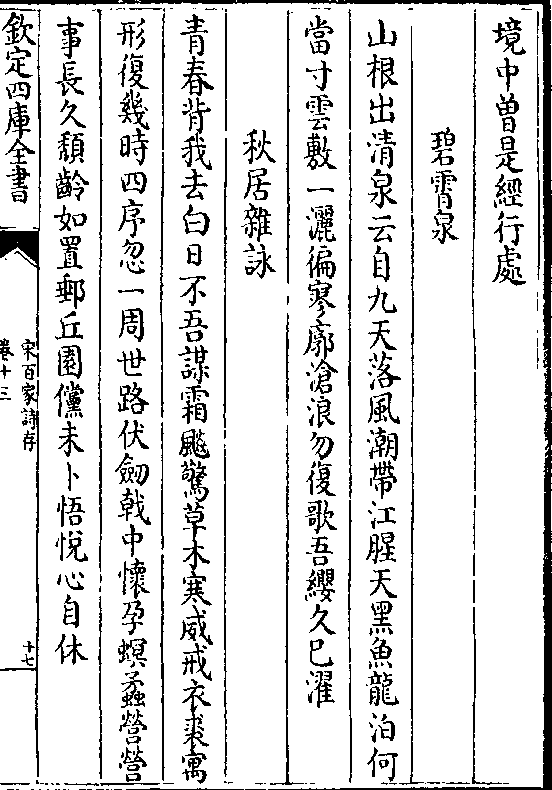 境中曽是經行處
碧霄泉
山根出清泉云自九天落風潮帶江腥天黑魚龍泊何
當寸雲敷一灑徧寥廓滄浪勿復歌吾纓久已濯
秋居雜詠
青春背我去白日不吾謀霜飈驚草木寒威戒衣裘寓
形復幾時四序忽一周世路伏劒戟中懷孕螟蟊營營
事長久頽齡如置郵丘園儻未卜悟悅心自休
欽定四庫全書
宋百家詩存
卷十三
十七